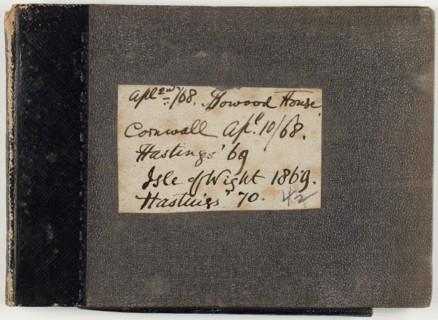 Apl 2nd/68. Howood House
Cornwall Apl. 10/68.
Hastings '69
Isle of Wight 1869.
Hastings '70. 42